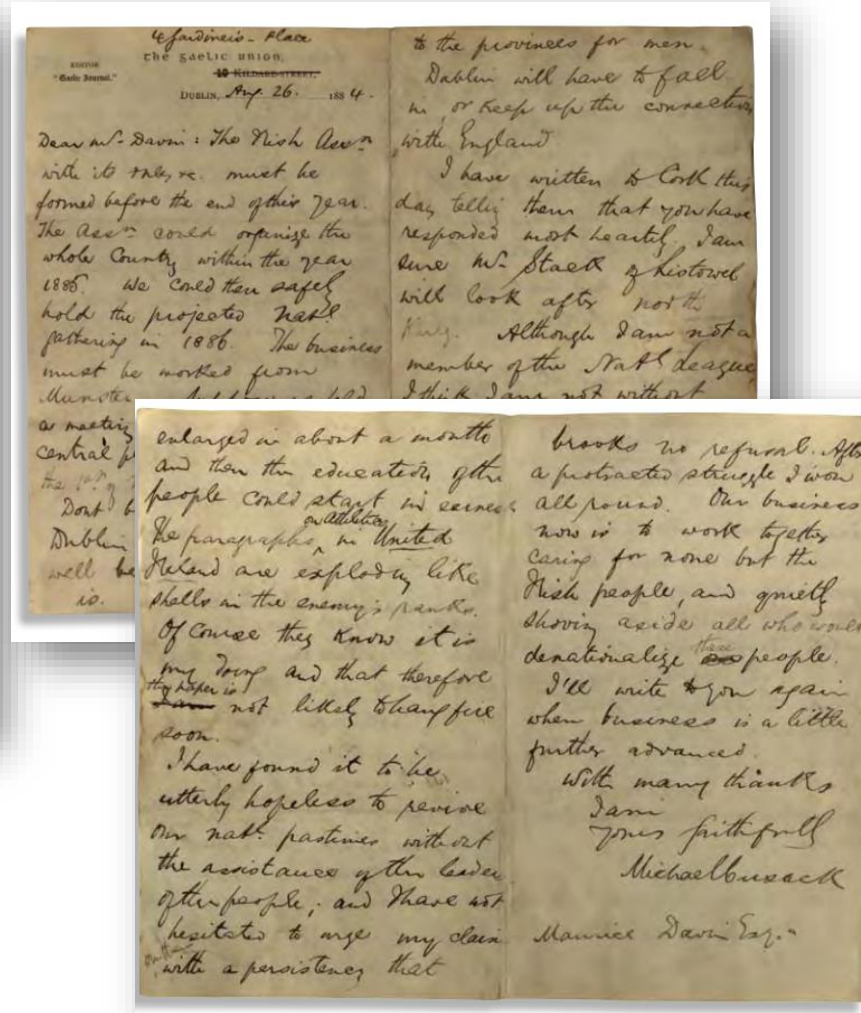 4 Gardiner's Place
EDITOR
"Gaelic Journal."
the gaelic union,
19 KILDARE-STREET,
DUBLIN, Aug. 26. 1884.
Dear Mr. Davin: The Irish Assn.
with its rules, &c. must be
formed before the end of this year.
The Assn. could organize the
whole Country within the year
1885. We could then safely
hold the projected Natl.
gathering in 1886. The business
must be worked from
Munster.
a meeting
central
Dont
Dublin
well be
is.
to the provinces for men.
Dublin will have to fall
in, or keep up the connection
with England
I have written to Cork this
day telling them that you have
responded most heartily. I am
sure Mr. Stack of Listowel
will look after north
Kerry. Although I am not a
member of the Natl. League
I think I am not without
enlarged in about a month
and then the education of the
people could start in earnest
The paragraphs on Athletics in United
Ireland are exploding like
shells in the enemy's ranks.
Of Course they know it is
my doing and that therefore
the paper is
I am not likely to hang fire
soon.
I have found it to be
utterly hopeless to revive
our natl. pastimes without
the assistance of the leaders
of the people; and I have not
hesitated to urge my claim
with a persistency that
brooks no refusal. After
a protracted struggle I won
all round. Our business
now is to work together
caring for none but the
Irish people, and quietly
shoving aside all who would
denationalize these people.
I'll write to you again
when business is a little
further advanced.
With many thanks
I am
Yours faithfully
Michael Cusack
Maurice Davin Esq.